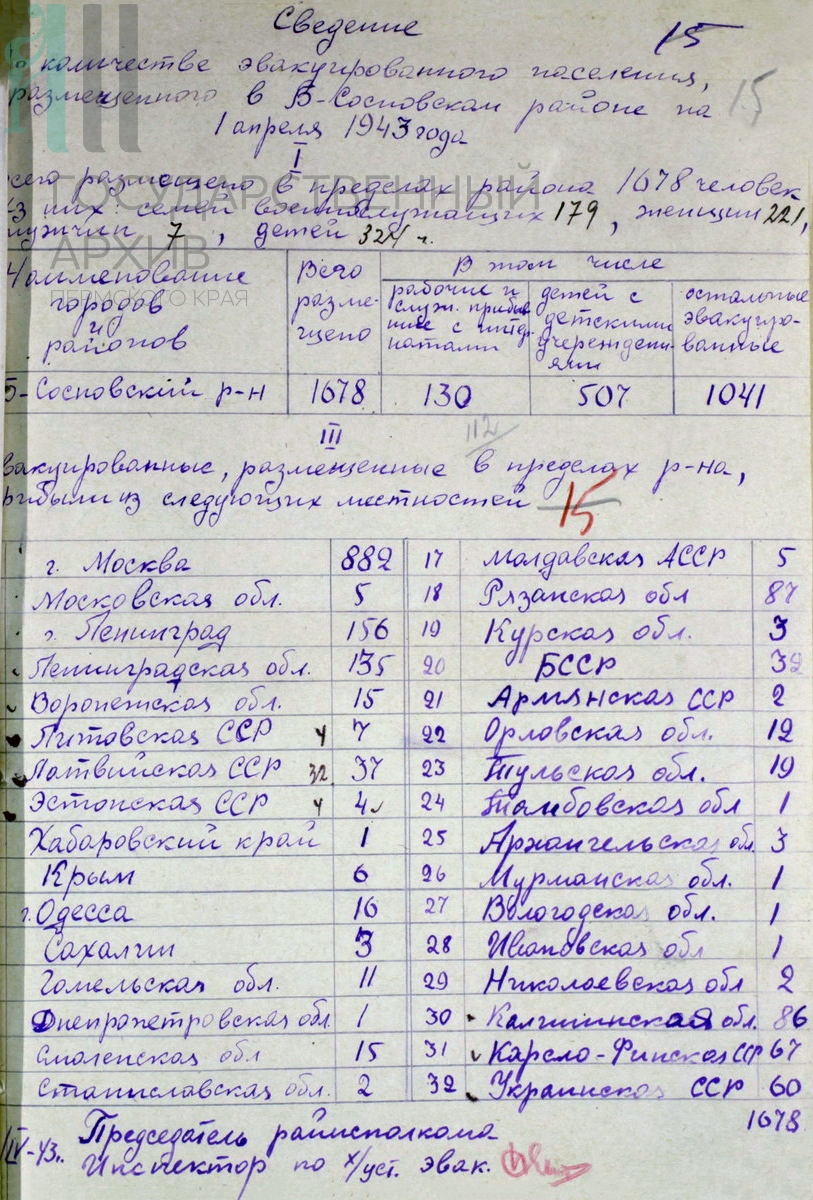 Сведение
15
о количестве эвакуированного населения,
размещенного в Б-Сосновском районе на
15
1 апреля 1943 года
I
всего размещено в пределах района 1678 человек
из них: семей военнослужащих 179, женщин 221,
мужчин 7, детей 324 ч.
ГОСУДАРСТВЕННЫЙ
АРХИВ
ПЕРМСКОГО КРАЯ
Наименование городов и районов
Всего размещено
В том числе
рабочие и служ. прибывшие с интернатами
детей с детскими учереждениями
остальные эвакуированные
Б-Сосновский р-н 1678 130 507 1041
112
III
Эвакуированные, размещенные в пределах р-на,
прибыли из следующих местностей
15
г. Москва 882 17 Молдавская АССР 5
Московская обл. 5 18 Рязанская обл 87
г. Ленинград 156 19 Курская обл. 3
Ленинградская обл. 135 20 БССР 32
Воронежская обл. 15 21 Армянская ССР 2
Литовская ССР 4 7 22 Орловская обл. 12
Латвийская ССР 32 37 23 Тульская обл. 19
Эстонская ССР 4 4 24 Тамбовская обл 1
Хабаровский край 1 25 Архангельская обл 3
Крым 6 26 Мурманская обл. 1
г. Одесса 16 27 Вологодская обл. 1
Сахалин 3 28 Ивановская обл 1
Гомельская обл. 11 29 Николаевская обл 2
Днепропетровская обл. 1 30 Калининская обл. 86
Смоленская обл 15 31 Карело-Финская ССР 67
Станиславская обл. 2 32 Украинская ССР 60
1678
IV-43г. Председатель райисполкома
Инспектор по х/уст. эвак.